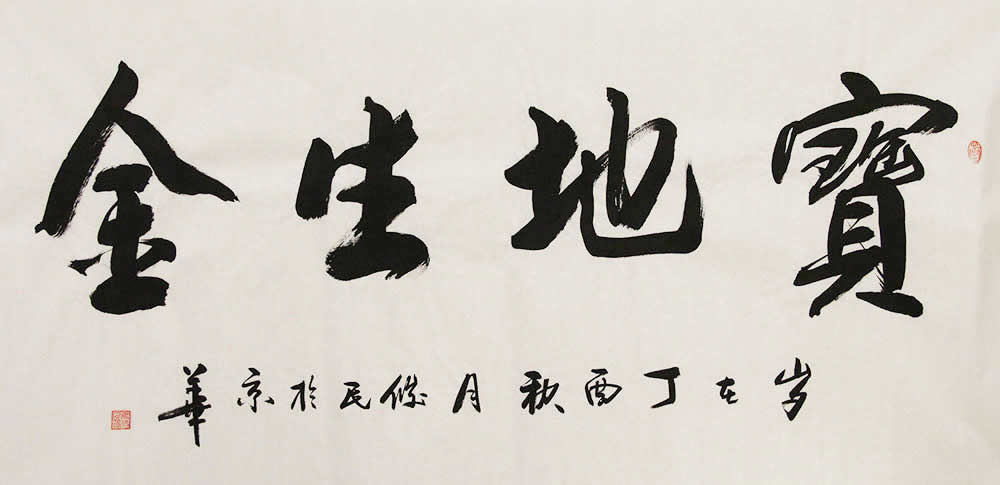 寶地生金
岁在丁酉秋月俊民於京華